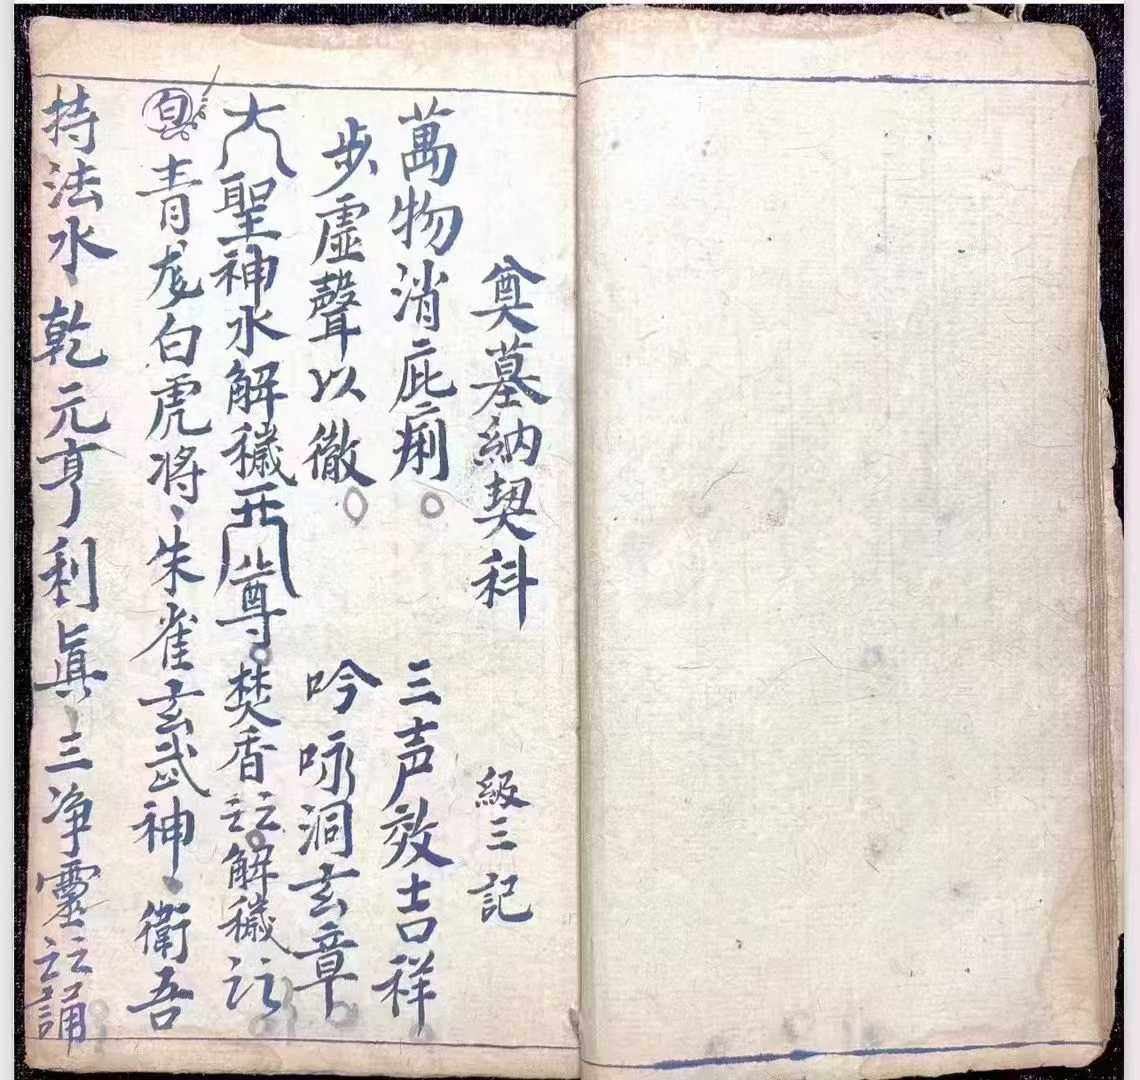 奠墓納契科 級三記
萬物消庇痢 三声效吉祥
步虛聲以徹 吟咏洞玄章
大聖神水解穢天尊 焚香 解穢
青龙白虎将、朱雀玄武神、衛吾
持法水、乾元亨利眞、三净靈 誦